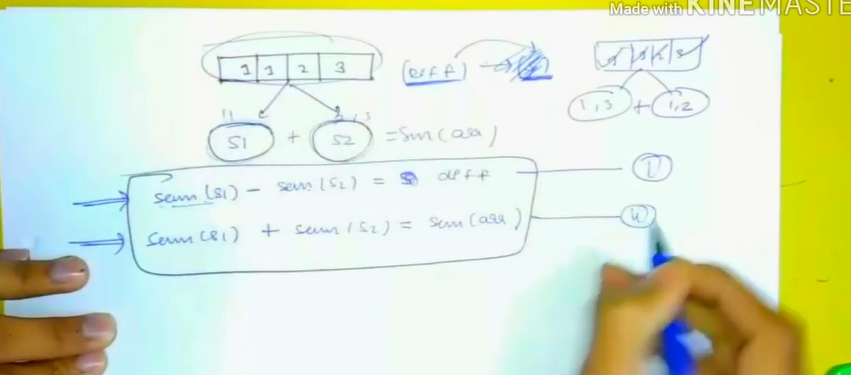 Made with KINEMASTE
1 1 2 3 (diff)
S1 + S2 = Sum(arr)
1,3 + 1,2
sum(S1) - sum(S2) = diff
sum(S1) + sum(S2) = sum(arr)